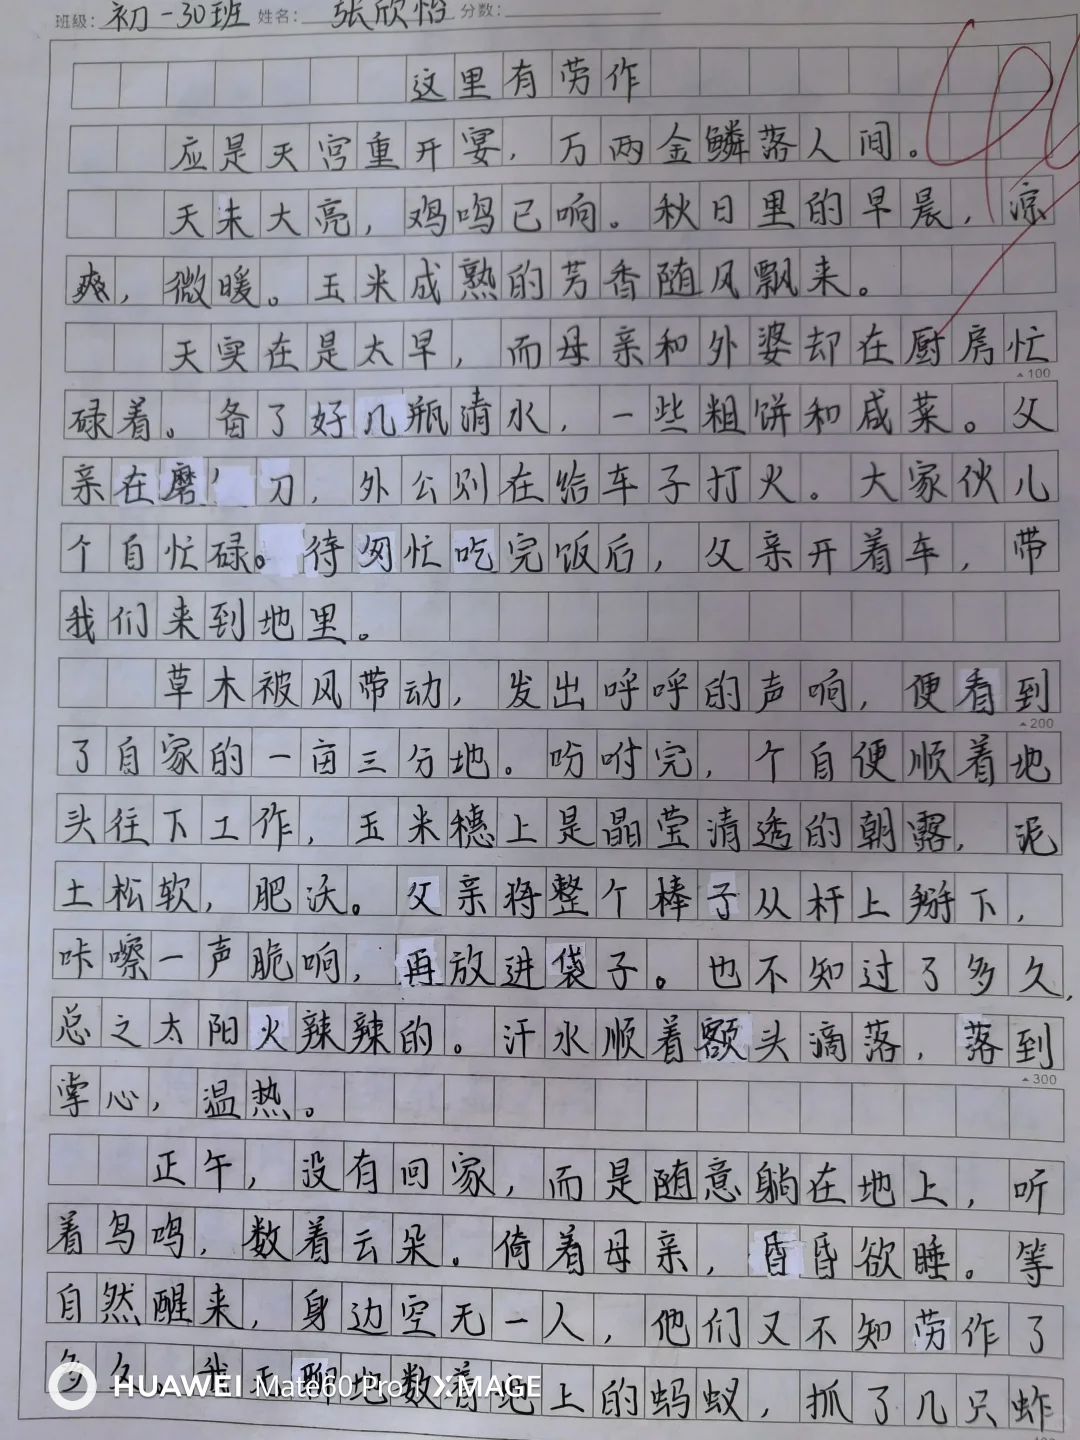 班级：初一30班 姓名：张欣怡 分数：
这里有劳作
应是天宫重开宴，万两金鳞落人间。
天未大亮，鸡鸣已响。秋日里的早晨，凉
爽，微暖。玉米成熟的芳香随风飘来。
天实在是太早，而母亲和外婆却在厨房忙
▲100
碌着。备了好几瓶清水，一些粗饼和咸菜。父
亲在磨刀，外公则在给车子打火。大家伙儿
个自忙碌。待匆忙吃完饭后，父亲开着车，带
我们来到地里。
草木被风带动，发出呼呼的声响，便看到
▲200
了自家的一亩三分地。吩咐完，个自便顺着地
头往下工作，玉米穗上是晶莹清透的朝露，泥
土松软，肥沃。父亲将整个棒子从杆上掰下，
咔嚓一声脆响，再放进袋子。也不知过了多久，
总之太阳火辣辣的。汗水顺着额头滴落，落到
▲300
掌心，温热。
正午，没有回家，而是随意躺在地上，听
着鸟鸣，数着云朵。倚着母亲，昏昏欲睡。等
自然醒来，身边空无一人，他们又不知劳作了
多久。我无聊地数着地上的蚂蚁，抓了几只蚱
HUAWEI Mate60 Pro XMAGE